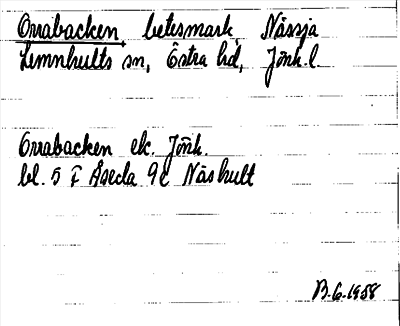 Orrabacken, betesmark, Nässja
Lemnhults sn, Östra hd, Jönk. l
Orrabacken ek. Jönk.
bl. 5 f Åseda 9c Näshult
B-6-1958